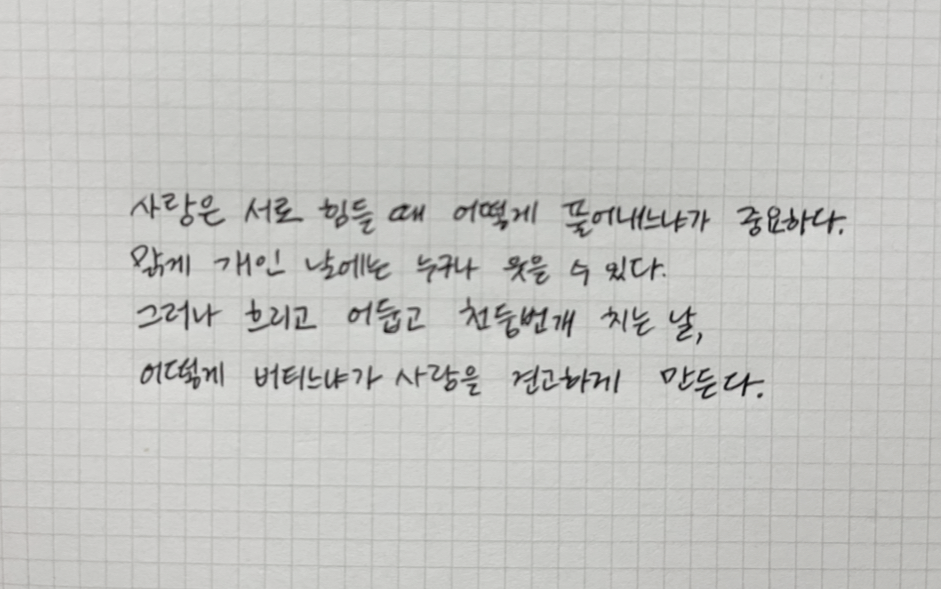 사랑은 서로 힘들 때 어떻게 풀어내느냐가 중요하다.
맑게 개인 날에는 누구나 웃을 수 있다.
그러나 흐리고 어둡고 천둥번개 치는 날,
어떻게 버티느냐가 사랑을 견고하게 만든다.